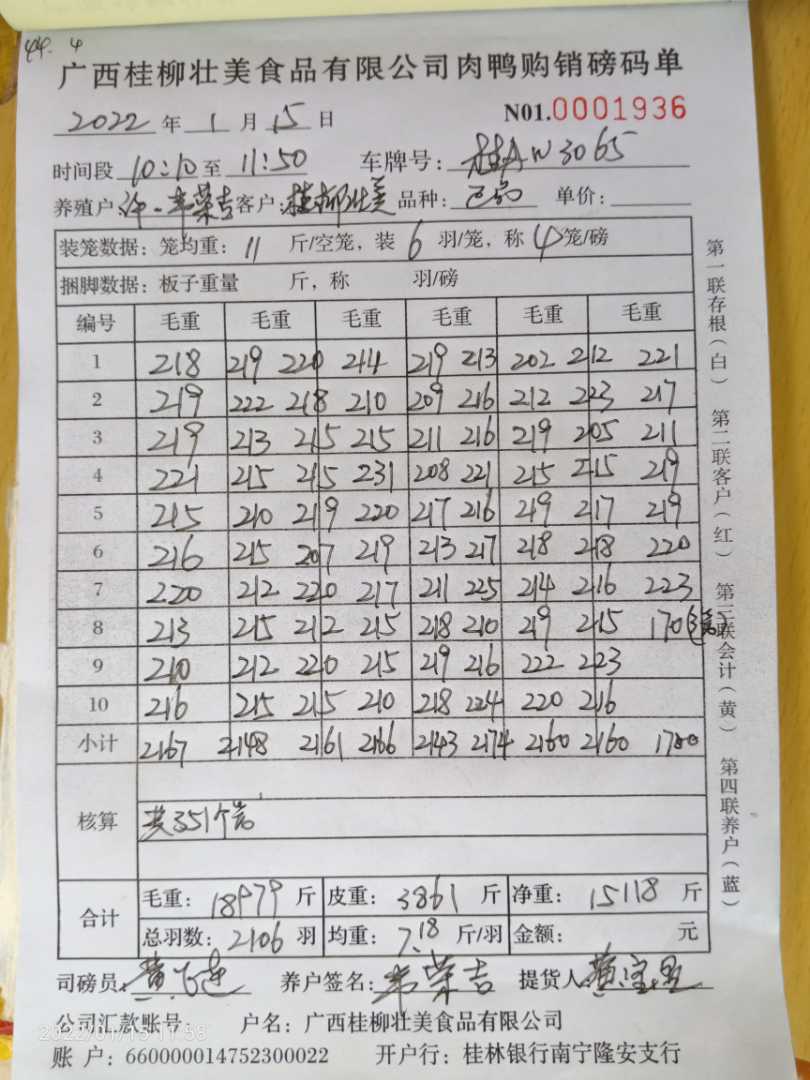 44. 4
广西桂柳壮美食品有限公司肉鸭购销磅码单
2022 年 1 月 15 日 N01.0001936
时间段 10:10 至 11:50 车牌号: 桂AW3065
养殖户: 韦荣吉 客户: 桂柳壮美 品种: 单价:
装笼数据: 笼均重: 11 斤/空笼, 装 6 羽/笼, 称 4 笼/磅
捆脚数据: 板子重量 斤, 称 羽/磅
编号 毛重 毛重 毛重 毛重 毛重 毛重
1 218 219 220 214 219 213 202 212 221
2 219 222 218 210 209 216 212 223 217
3 219 213 215 215 211 216 219 205 211
4 221 215 215 231 208 221 215 215 219
5 215 210 219 220 217 216 219 217 219
6 216 215 207 219 213 217 218 218 220
7 220 212 220 217 211 225 214 216 223
8 213 215 212 215 218 210 219 215 170(3笼)
9 210 212 220 215 219 216 222 223
10 216 215 215 210 218 224 220 216
小计 2167 2148 2161 2166 2143 2174 2160 2160 1700
核算 共351个笼
合计 毛重: 18979 斤 皮重: 3861 斤 净重: 15118 斤
总羽数: 2106 羽 均重: 7.18 斤/羽 金额: 元
司磅员: 黄 养户签名: 韦荣吉 提货人: 黄宝
公司汇款账号 户名: 广西桂柳壮美食品有限公司
账 户: 660000014752300022 开户行: 桂林银行南宁隆安支行
2022/01/15 11:58
第一联存根(白) 第二联客户(红) 第三联会计(黄) 第四联养户(蓝)